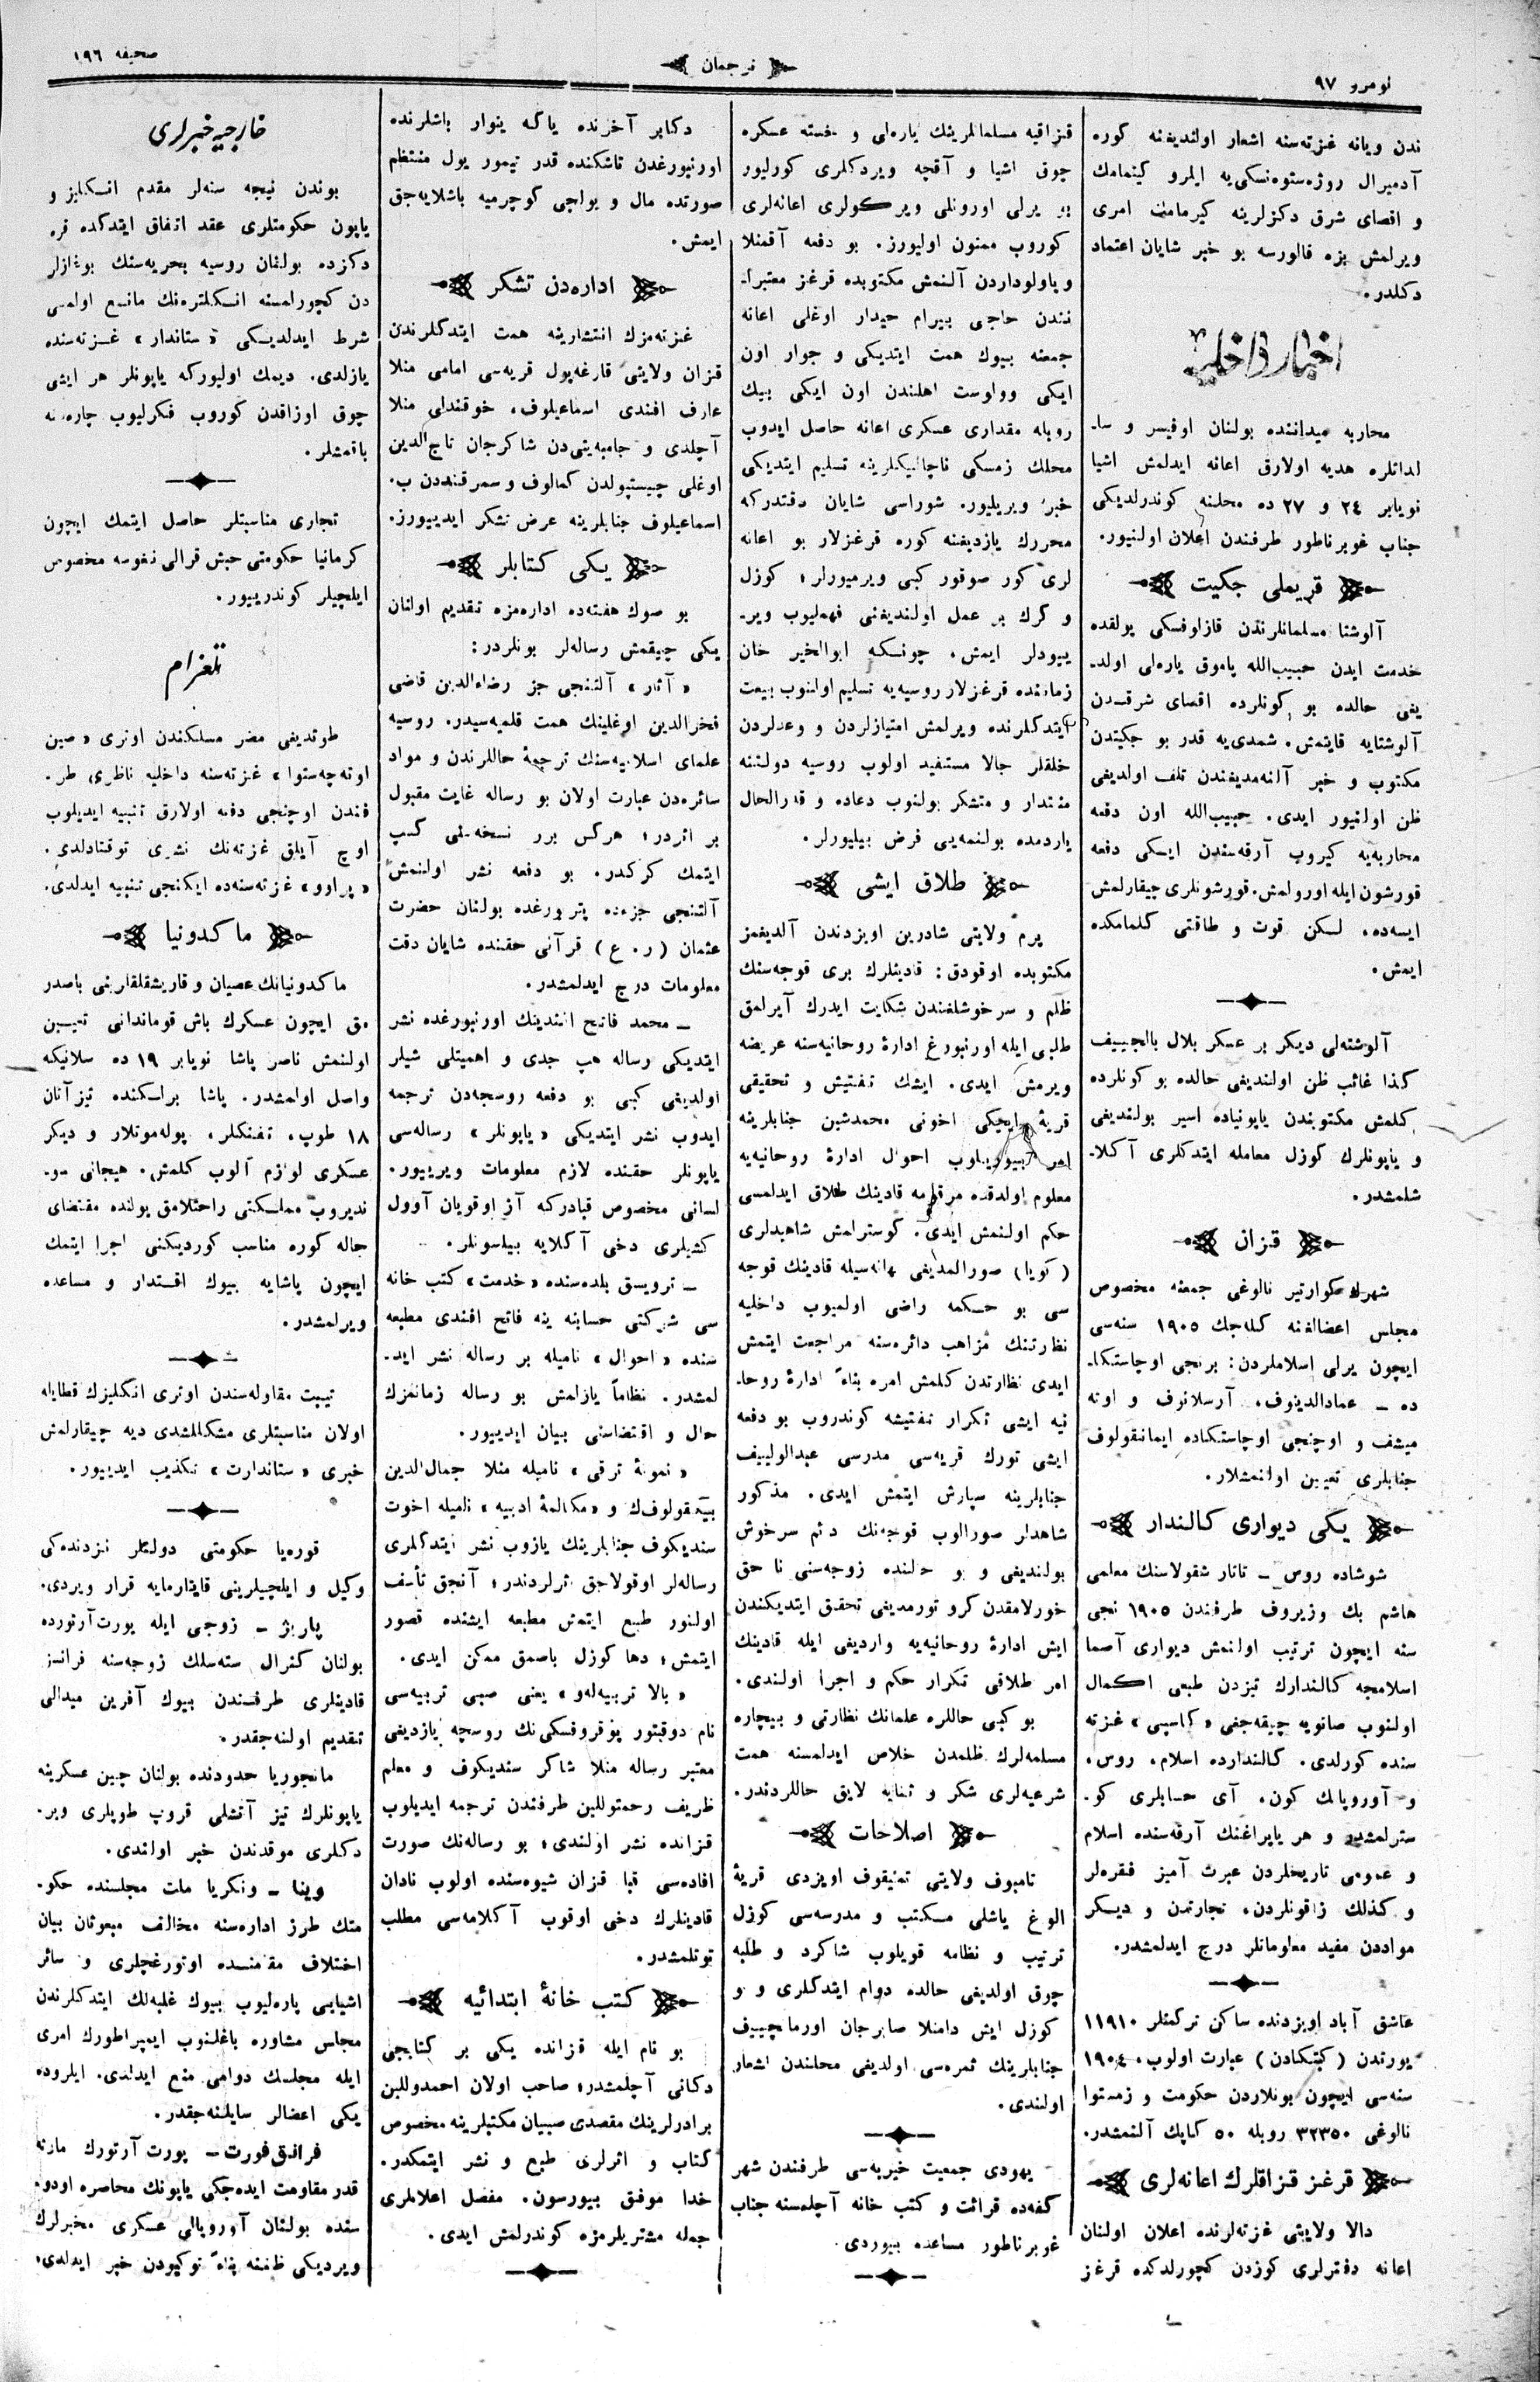 نومرو ٩٧
ترجمان
صحیفه ١٩٦
ندن ویانه غزته‌سنه اشعار اولندیغنه كوره
آدمیرال روژه‌ستوه‌نسكی‌یه ایلرو كیتمامك
و اقصای شرق دكزلرینه كیرمامك امری
ویرلمش بزه قالورسه بو خبر شایان اعتماد
دكلدر.
اخبار داخلیه
محاربه میداننده بولنان اوفیسر و سا-
لداتلره هدیه اولارق اعانه ایدلمش اشیا
نویابر ٢٤ و ٢٧ ده محلنه كوندرلدیكی
جناب غوبرناطور طرفندن اعلان اولنیور.
قریملی جكیت
آلوشتا مسلمانلرندن قازلوفسكی پولقده
خدمت ایدن حبیب‌الله پاموق یاره‌لی اولد-
یغی حالده بو كونلرده اقصای شرقدن
آلوشتایه قایتمش. شمدی‌یه قدر بو جكیتدن
مكتوب و خبر آلنه‌مدیغندن تلف اولدیغی
ظن اولنیور ایدی. حبیب‌الله اون دفعه
محاربه‌یه كیروب آرقه‌سندن ایكی دفعه
قورشون ایله اورولمش. قورشونلری جیقارلمش
ایسه‌ده، لسكن قوت و طاقتی كلمامكده
ایمش.
آلوشته‌لی دیكر بر عسكر بلال بالجیییف
كذا غائب ظن اولندیغی حالده بو كونلرده
كلمش مكتوبندن یاپونیاده اسیر بولندیغی
و یاپونلرك كوزل معامله ایتدكلری آكلا-
شلمشدر.
قزان
شهرك كوارتیر نالوغی جمعنه مخصوص
مجلس اعضالغنه كله‌جك ١٩٠٥ سنه‌سی
ایچون یرلی اسلاملردن: برنجی اوچاستكا-
ده – عمادالدینوف، آرسلانوف و اوته
میشف و اوچنجی اوچاستكاده ایمانقولوف
جنابلری تعیین اولنمشلار.
یكی دیواری كالندار
شوشاده روس – تاتار شقولاسنك معلمی
هاشم بك وزیروف طرفندن ١٩٠٥ نجی
سنه ایچون ترتیب اولنمش دیواری آصما
اسلامجه كالندارك تیزدن طبعی اكمال
اولنوب صانویه چیقه‌جغی «كاسپی» غزته
سنده كورلدی. كالندارده اسلام، روس،
و آوروپانك كون، آی حسابلری كو-
سترلمشدر و هر یاپراغنك آرقه‌سنده اسلام
و عمومی تاریخلردن عبرت آمیز فقره‌لر
و كذلك زاقونلردن، تجارتدن و دیكر
مواددن مفید معلوماتلر درج ایدلمشدر.
عاشق آباد اویزدنده ساكن تركمنلر ١١٩١٠
یورتدن (كبتكادن) عبارت اولوب، ١٩٠٤
سنه‌سی ایچون بونلاردن حكومت و زمستوا
نالوغی ٣٢٣٥٠ روبله ٥٠ كاپك آلنمشدر.
قرغز قزاقلرك اعانه‌لری
دالا ولایتی غزته‌لرنده اعلان اولنان
اعانه دفترلری كوزدن كچورلدكده قرغز
قزاقیه مسلمانلرینك یاره‌لی و خسته عسكره
چوق اشیا و آقچه ویردكلری كورلیور
بو یرلی اورونلی ویركولری اعانه‌لری
كوروب ممنون اولیورز. بو دفعه آقمنلا
و پاولوداردن آلنمش مكتوبده قرغز معتبرا-
نندن حاجی بیرام حیدار اوغلی اعانه
جمعنه بیوك همت ایتدیكی و جوار اون
ایكی وولوست اهلندن اون ایكی بیك
روبله مقداری عسكری اعانه حاصل ایدوب
محلك زمسكی ناچالنیكلرینه تسلیم ایتدیكی
خبر ویریلیور. شوراسی شایان دقتدركه
محررك یازدیغنه كوره قرغزلار بو اعانه
لری كور صوقور كبی ویرمیورلر؛ كوزل
و كرك بر عمل اولندیغنی فهملیوب ویر-
ییودلر ایمش. چونسكه ابوالخیر خان
زماننده قرغزلار روسیه‌یه تسلیم اولنوب بیعت
ایتدكلرنده ویرلمش امتیازلردن و وعدلردن
خلقلر حالا مستفید اولوب روسیه دولتنه
منتدار و متشكر بولنوب دعاده و قدرالحال
یاردمده بولنمه‌یی فرض بیلیورلر.
طلاق ایشی
پرم ولایتی شادرین اویزدندن آلدیغمز
مكتوبده اوقودق: قادینلرك بری قوجه‌سنك
ظلم و سرخوشلغندن شكایت ایدرك آیرلمق
طلبی ایله اورنبورغ ادارهٔ روحانیه‌سنه عریضه
ویرمش ایدی. ایشك تفتیش و تحقیقی
قریهٔ ایچكی اخونی محمدشین جنابلرینه
امر بیوریلوب احوال ادارهٔ روحانیه‌یه
معلوم اولدقده مرقومه قادینك طلاق ایدلمسی
حكم اولنمش ایدی. كوسترلمش شاهدلری
(كویا) صورالمدیغی بهانه‌سیله قادینك قوجه
سی بو حكمه راضی اولمیوب داخلیه
نظارتنك مزاهب دائره‌سنه مراجعت ایتمش
ایدی نظارتدن كلمش امره بناءً ادارهٔ روحا-
نیه ایشی تكرار تفتیشه كوندروب بو دفعه
ایشی تورك قریه‌سی مدرسی عبدالولییف
جنابلرینه سپارش ایتمش ایدی. مذكور
شاهدلر صورالوب قوجه‌نك دئم سرخوش
بولندیغی و بو حالنده زوجه‌سنی نا حق
خورلامقدن كرو تورمدیغی تحقق ایتدیكندن
ایش ادارهٔ روحانیه‌یه واردیغی ایله قادینك
امر طلاقی تكرار حكم و اجرا اولندی.
بو كبی حاللره علمانك نظارتی و بیچاره
مسلمه‌لرك ظلمدن خلاص ایدلمسنه همت
شرعیه‌لری شكر و ثنایه لایق حاللردندر.
اصلاحات
تامبوف ولایتی تمنیقوف اویزدی قریهٔ
الوغ یاشلی مكتب و مدرسه‌سی كوزل
ترتیب و نظامه قویلوب شاكرد و طلبه
چوق اولدیغی حالده دوام ایتدكلری و و
كوزل ایش داملا صابرجان اورماچییف
جنابلرینك ثمره‌سی اولدیغی محلندن اشعار
اولندی.
یهودی جمعیت خیریه‌سی طرفندن شهر
كفه‌ده قرائت و كتب خانه آچلمسنه جناب
غوبرناطور مساعده بیوردی.
دكابر آخرنده یاكه ینوار باشلرنده
اورنبورغدن تاشكنده قدر تیمور یول منتظم
صورتده مال و یولچی كوچرمیه باشلایه‌جق
ایمش.
اداره‌دن تشكر
غزته‌مزك انتشارینه همت ایتدكلرندن
قزان ولایتی قارغه‌پول قریه‌سی امامی منلا
عارف افندی اسماعیلوف، خوقندلی منلا
آچلدی و جامبه‌یتی‌دن شاكرجان تاج‌الدین
اوغلی چیستپولدن كمالوف و سمرقنددن ب.
اسماعیلوف جنابلرینه عرض تشكر ایدییورز.
یكی كتابلر
بو صوك هفته‌ده اداره‌مزه تقدیم اولنان
یكی چیقمش رساله‌لر بونلردر:
«آثار» آلتنجی جز رضاءالدین قاضی
فخرالدین اوغلینك همت قلمیه‌سیدر. روسیه
علمای اسلامیه‌سنك ترجمهٔ حاللرندن و مواد
سائره‌دن عبارت اولان بو رساله غایت مقبول
بر اثردر؛ هركس برر نسخه‌سنی كسب
ایتمك كركدر. بو دفعه نشر اولنمش
آلتنجی جزءنده پتربورغده بولنان حضرت
عثمان (ر. ع) قرآنی حقنده شایان دقت
معلومات درج ایدلمشدر.
– محمد فاتح افندینك اورنبورغده نشر
ایتدیكی رساله هپ جدی و اهمیتلی شیلر
اولدیغی كبی بو دفعه روسجه‌دن ترجمه
ایدوب نشر ایتدیكی «یاپونلر» رساله‌سی
یاپونلر حقنده لازم معلومات ویرییور.
لسانی مخصوص قبادركه آز اوقویان آوول
كشیلری دخی آكلایه بیلسونلر.
– ترویسق بلده‌سنده «خدمت» كتب خانه
سی شركتی حسابنه ینه فاتح افندی مطبعه
سنده «احوال» نامیله بر رساله نشر اید-
لمشدر. نظاماً یازلمش بو رساله زمانمزك
حال و اقتضاسنی بیان ایدییور.
«نمونهٔ ترقی» نامیله منلا جمال‌الدین
بیكقولوفك و «مكالمهٔ ادبیه» نامیله اخوت
سندیكوف جنابلرینك یازوب نشر ایتدكلری
رساله‌لر اوقولاجق اثرلردندر؛ آنجق تأسف
اولنور طبع ایتمش مطبعه ایشنده قصور
ایتمش؛ دها كوزل باصمق ممكن ایدی.
«بالا تربیه‌له‌و» یعنی صبی تربیه‌سی
نام دوقتور پوقروفسكی‌نك روسچه یازدیغی
معتبر رساله منلا شاكر سندیكوف و معلم
ظریف رحمتوللین طرفندن ترجمه ایدیلوب
قزانده نشر اولندی؛ بو رساله‌نك صورت
افاده‌سی قبا قزان شیوه‌سنده اولوب نادان
قادینلرك دخی اوقوب آكلامه‌سی مطلب
توتلمشدر.
كتب خانهٔ ابتدائیه
بو نام ایله قزانده یكی بر كتابجی
دكانی آچلمشدر؛ صاحب اولان احمدوللین
برادرلرینك مقصدی صبیان مكتبلرینه مخصوص
كتاب و اثرلری طبع و نشر ایتمكدر.
خدا موفق بیورسون. مفصل اعلانلری
جمله مشتریلرمزه كوندرلمش ایدی.
خارجیه خبرلری
بوندن نیجه سنه‌لر مقدم انكلیز و
یاپون حكومتلری عقد اتفاق ایتدكده قره
دكزده بولنان روسیه بحریه‌سنك بوغازلر
دن كچورلمسنه انكلتره‌نك مانع اولمسی
شرط ایدلدیكی «ستاندار» غزته‌سنده
یازلدی. دیمك اولیوركه یاپونلر هر ایشی
چوق اوزاقدن كوروب فكرلیوب چاره‌سنه
باقمشلر.
تجاری مناسبتلر حاصل ایتمك ایچون
كرمانیا حكومتی حبش قرالی نغوسه مخصوص
ایلچیلر كوندرییور.
تلغرام
طوتدیغی مضر مسلكندن اوتری «صین
اوته‌چه‌ستوا» غزته‌سنه داخلیه ناظری طر-
فندن اوچنجی دفعه اولارق تنبیه ایدیلوب
اوچ آیلق غزته‌نك نشری توقتادلدی.
«پراوو» غزته‌سنه‌ده ایكنجی تنبیه ایدلدی.
ماكدونیا
ماكدونیانك عصیان و قاریشقلقلارینی باصدر
مق ایچون عسكرك باش قوماندانی تعیین
اولنمش ناصر پاشا نویابر ١٩ ده سلانیكه
واصل اولمشدر. پاشا برلسكنده تیز آتان
١٨ طوپ، تفنكلر، پوله‌موتلار و دیكر
عسكری لوازم آلوب كلمش. هیجانی سو-
ندیروب مملكتی راحتلامق یولنده مقتضای
حاله كوره مناسب كوردیكنی اجرا ایتمك
ایچون پاشایه بیوك اقتدار و مساعده
ویرلمشدر.
تیبت مقاوله‌سندن اوتری انگلیزك قطایله
اولان مناسبتلری مشكللشدی دیه چیقارلمش
خبری «ستاندارت» تكذیب ایدییور.
قوره‌یا حكومتی دولتلر نزدنده‌كی
وكیل و ایلچیلرینی قایتارمایه قرار ویردی.
پاریژ – زوجی ایله پورت‌آرتورده
بولنان كنرال سته‌سلك زوجه‌سنه فرانسز
قادینلری طرفندن بیوك آفرین میدالی
تقدیم اولنه‌جقدر.
مانجوریا حدودنده بولنان چین عسكرینه
یاپونلرك تیز آتشلی قروپ طوپلری ویر-
دكلری موقدندن خبر اولندی.
وینا – ونكریا ملت مجلسنده حكو-
متك طرز اداره‌سنه مخالف مبعوثان بیان
اختلاف مقامنده اوتورغچلری و سائر
اشیایی پاره‌لیوب بیوك غلبه‌لك ایتدكلرندن
مجلس مشاوره باغلنوب ایمپراطورك امری
ایله مجلسك دوامی منع ایدلدی. ایلروده
یكی اعضالر سایلنه‌جقدر.
فرانق فورت – پورت آرتورك مارته
قدر مقاومت ایده‌جكی یاپونك محاصره اودو-
سنده بولنان آوروپالی عسكری مخبرلرك
ویردیكی ظننه بناءً توكیودن خبر ایدلدی،